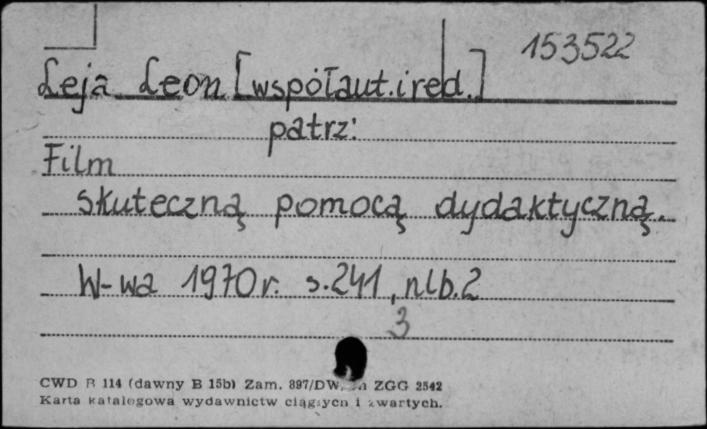 153522
Leja Leon [współaut. i red.]
patrz:
Film
skuteczną pomocą dydaktyczną.
W-wa 1970r. s.241, nlb.2
3
CWD B 114 (dawny B 15b) Zam. 897/DW. ZGG 2542
Karta katalogowa wydawnictw ciągłych i zwartych.